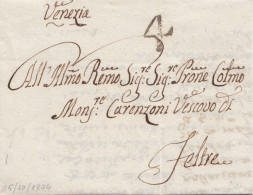 Venezia
4
All' Illmo Remo Sigre Sigre Prone Colmo
Monsre Carenzoni Vescovo di
Feltre
15/10/1804